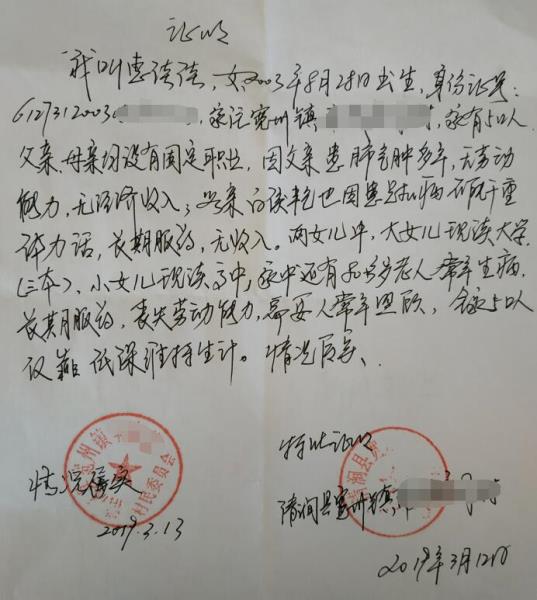 证明
我叫惠倩倩，女，2003年8月28日出生，身份证号：
6127312003，家住宽州镇，家有5口人
父亲、母亲均没有固定职业，因父亲患肺气肿多年，无劳动
能力，无经济收入；母亲白读艳也因患病不能干重
体力活，长期服药，无收入。两女儿中，大女儿现读大学
(三本)，小女儿现读高中，家中还有80多岁老人常年生病
长期服药，丧失劳动能力，需要人常年照顾，全家5口人
仅靠低保维持生计。情况属实、
特此证明
情况属实
2019.3.13
清涧县宽州镇
2019年3月12日
宽州镇
村民委员会
清涧县